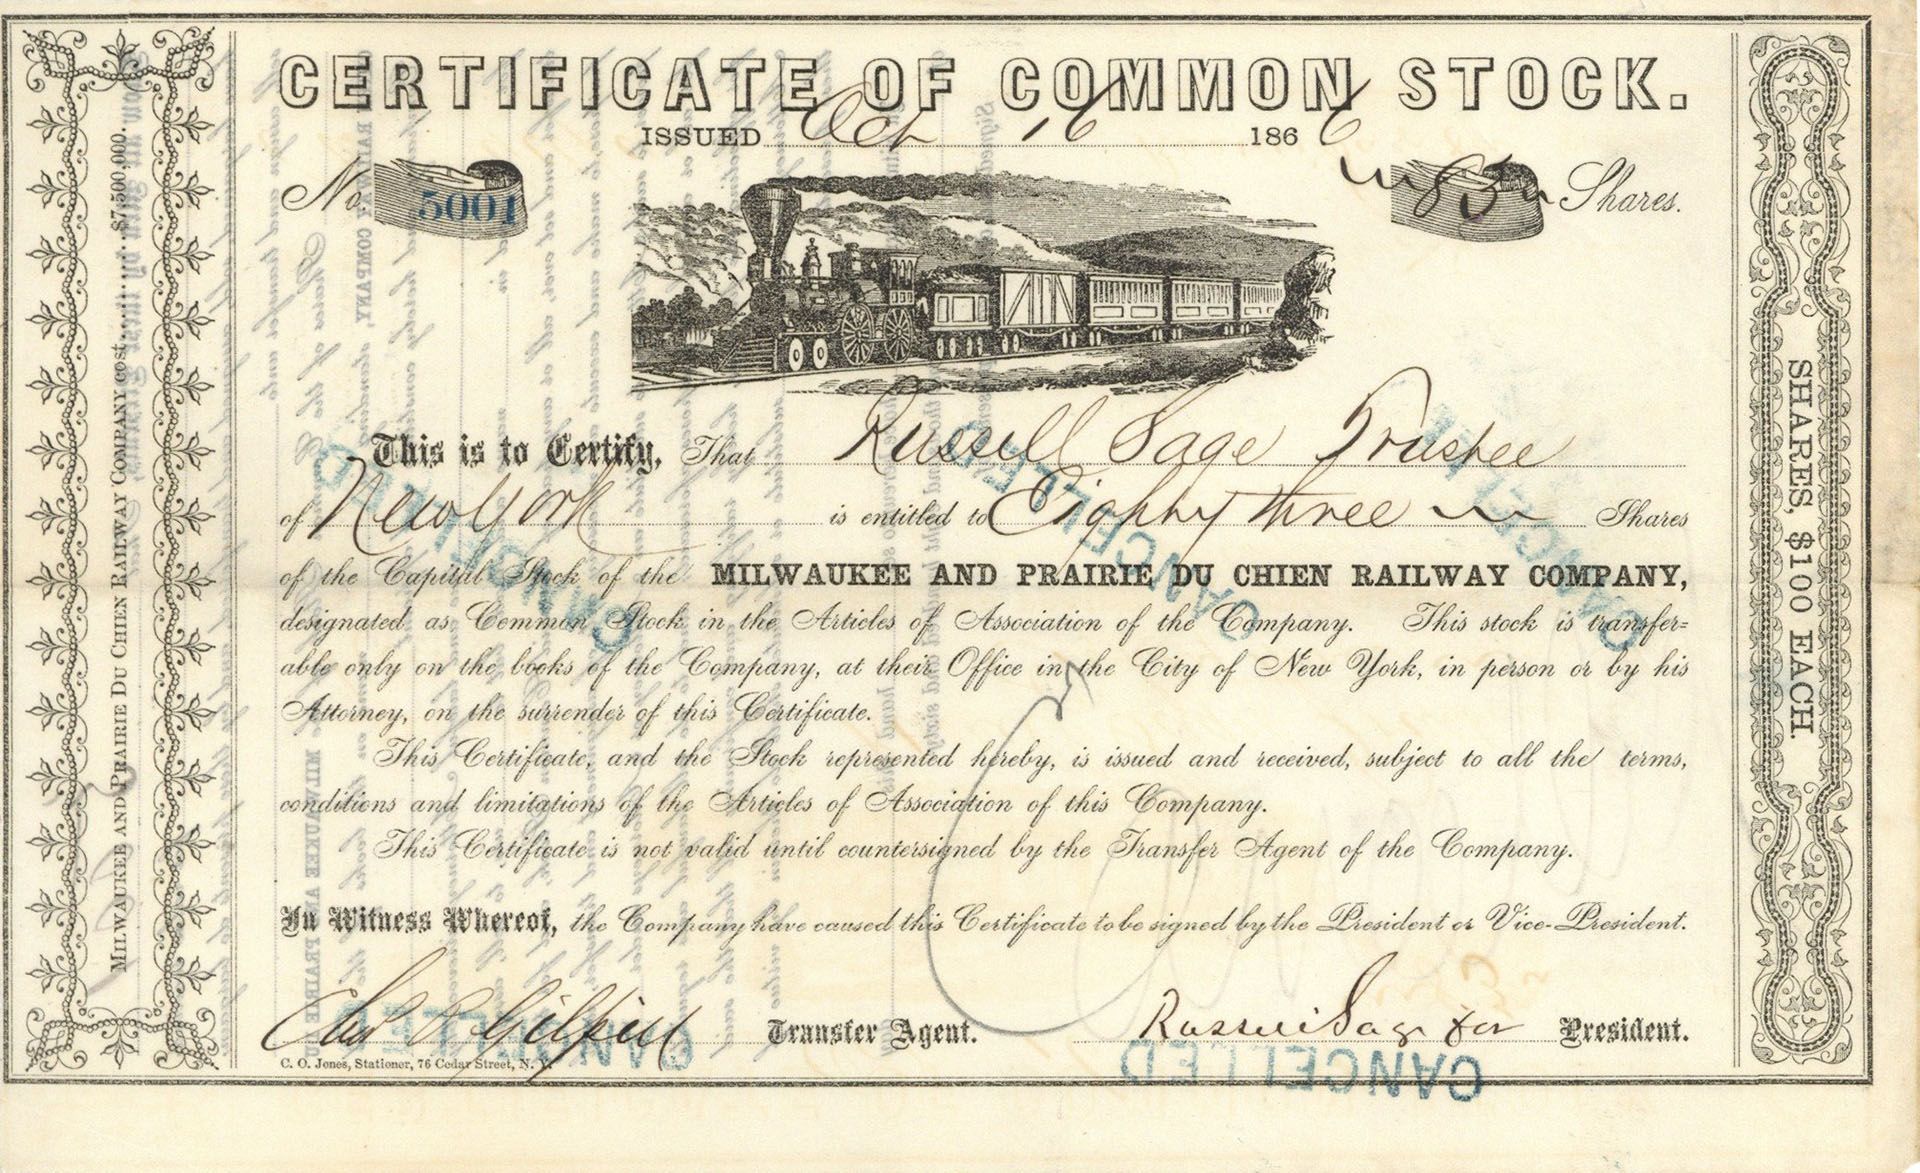 CERTIFICATE OF COMMON STOCK.
ISSUED Oct 16 1866
No. 5001
83 Shares.
This is to Certify, That Russell Sage Trustee
of New York is entitled to Eighty three Shares
of the Capital Stock of the MILWAUKEE AND PRAIRIE DU CHIEN RAILWAY COMPANY,
designated as Common Stock in the Articles of Association of the Company. This stock is transfer=
able only on the books of the Company, at their Office in the City of New York, in person or by his
Attorney, on the surrender of this Certificate.
This Certificate, and the Stock represented hereby, is issued and received, subject to all the terms,
conditions and limitations of the Articles of Association of this Company.
This Certificate is not valid until countersigned by the Transfer Agent of the Company.
In Witness Whereof, the Company have caused this Certificate to be signed by the President or Vice-President.
Transfer Agent.
Russell Sage President.
C. O. Jones, Stationer, 76 Cedar Street, N. Y.
MILWAUKEE AND PRAIRIE DU CHIEN RAILWAY COMPANY COST........ $7,500,000.
SHARES, $100 EACH.
CANCELLED
CANCELLED
CANCELLED
CANCELLED
CANCELLED